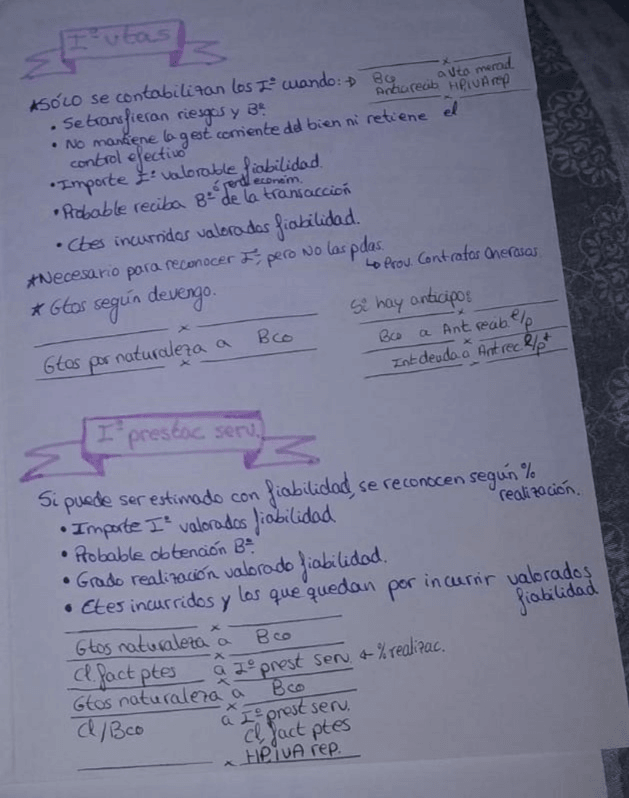 Iº vtas
*SÓLO se contabilizan los Iº cuando: →
x
Bco a Vta merad.
Anticrecib HPIVA rep
x
• Se transfieran riesgos y Bº.
• No mantiene la gest corriente del bien ni retiene el
control efectivo
• Importe Iº valorable fiabilidad.
• Probable reciba Bº ó rend econom. de la transacción
• Ctes incurridos valorados fiabilidad.
*Necesario para reconocer Iº, pero NO las pdas.
↳ Prov. Contratos Onerosos
* Gtos según devengo.
x
Gtos por naturaleza a Bco
x
Si hay anticipos
x
Bco a Ant recib e/p
x
Int deuda a Ant rec e/p +
Iº prestac serv.
Si puede ser estimado con fiabilidad, se reconocen según %
realización.
• Importe Iº valorados fiabilidad
• Probable obtención Bº.
• Grado realización valorado fiabilidad.
• Ctes incurridos y los que quedan por incurrir valorados
fiabilidad
x
Gtos naturaleza a Bco
x
Cl. fact ptes a Iº prest serv. ← % realizac.
x
Gtos naturaleza a Bco
x
Cl/Bco a Iº prest serv.
Cl, fact ptes
HPIVA rep.
x